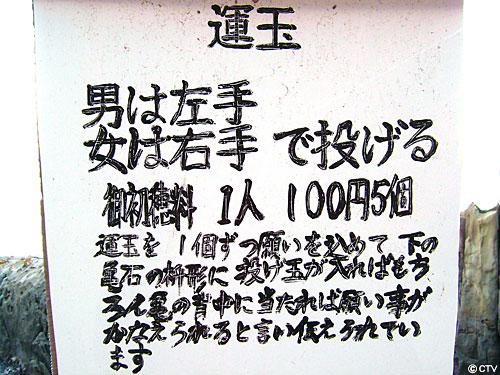 運玉
男は左手
女は右手 で投げる
御初穂料 1人 100円5個
運玉を 1個ずつ願いを込めて 下の
亀石の枡形に 投げ玉が入ればもち
ろん亀の背中に当たれば願い事が
かなえられると言い伝えられてい
ます
© CTV